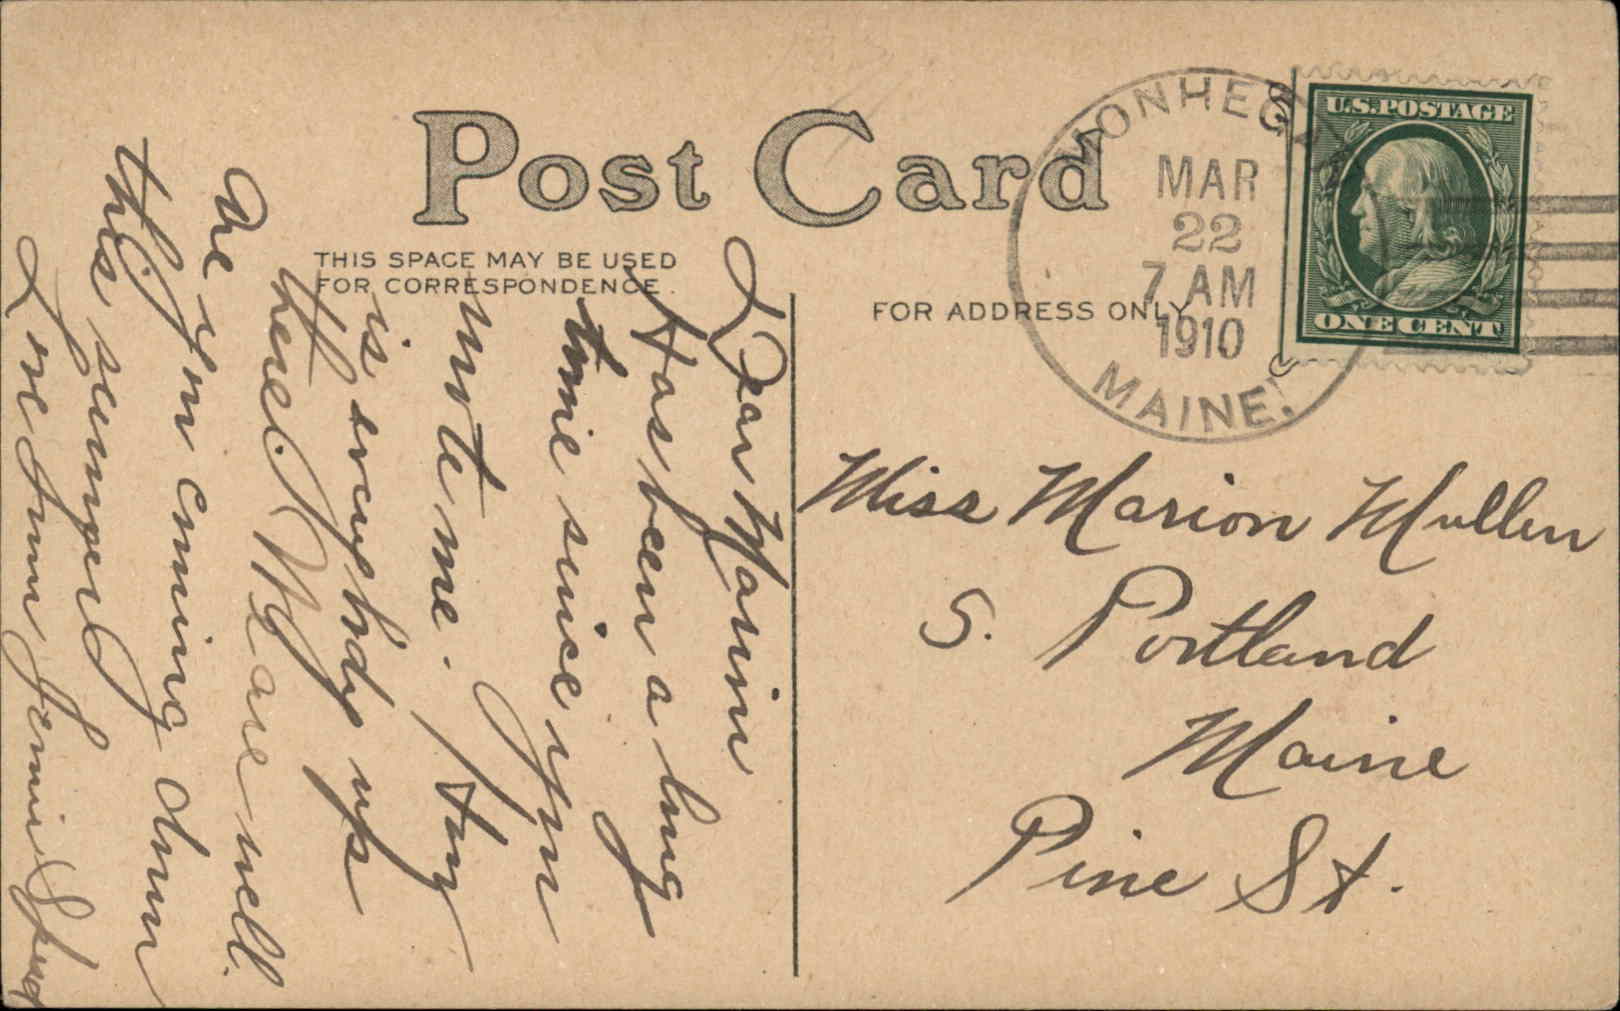 Post Card
THIS SPACE MAY BE USED
FOR CORRESPONDENCE.
FOR ADDRESS ONLY
MONHEGAN
MAR
22
7 AM
1910
MAINE.
U.S. POSTAGE
ONE CENT
Dear Marion
Has been a long
time since you
wrote me. How
is everybody up
there. We are well.
Are you coming down
this summer
Love from Jennie
Miss Marion Mullen
S. Portland
Maine
Pine St.